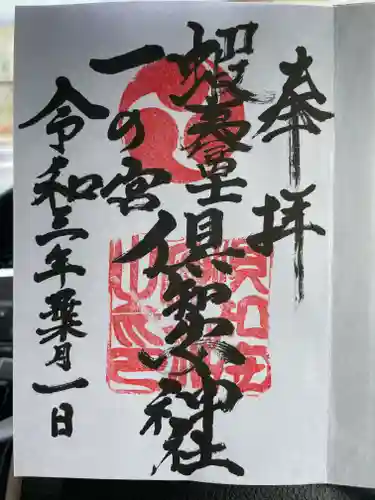 奉拝
蝦夷富士
倶知安神社
一の宮
令和三年葉月一日